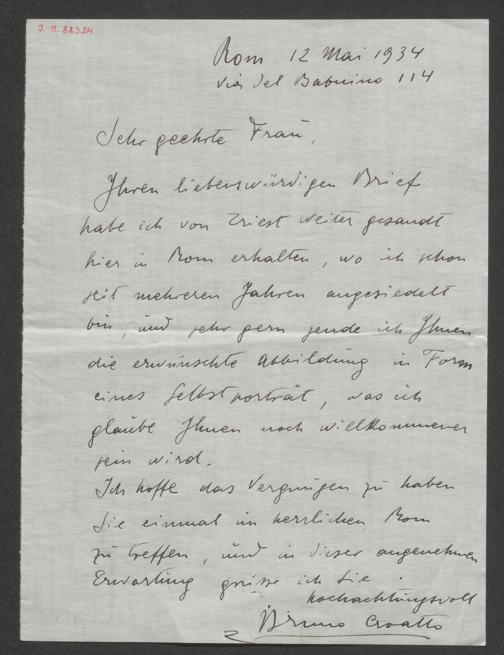 J. N. 88324
Rom 12 Mai 1934
Via del Babuino 114
Sehr geehrte Frau,
Ihren liebenswürdigen Brief
habe ich von Triest weiter gesandt
hier in Rom erhalten, wo ich schon
seit mehreren Jahren angesiedelt
bin, und sehr gern sende ich Ihnen
die erwünschte Abbildung in Form
eines Selbstporträt, was ich
glaube Ihnen noch willkommener
sein wird.
Ich hoffe das Vergnügen zu haben
Sie einmal im herrlichen Rom
zu treffen, und in dieser angenehmen
Erwartung grüsse ich Sie.
hochachtungsvoll
Bruno Croatto